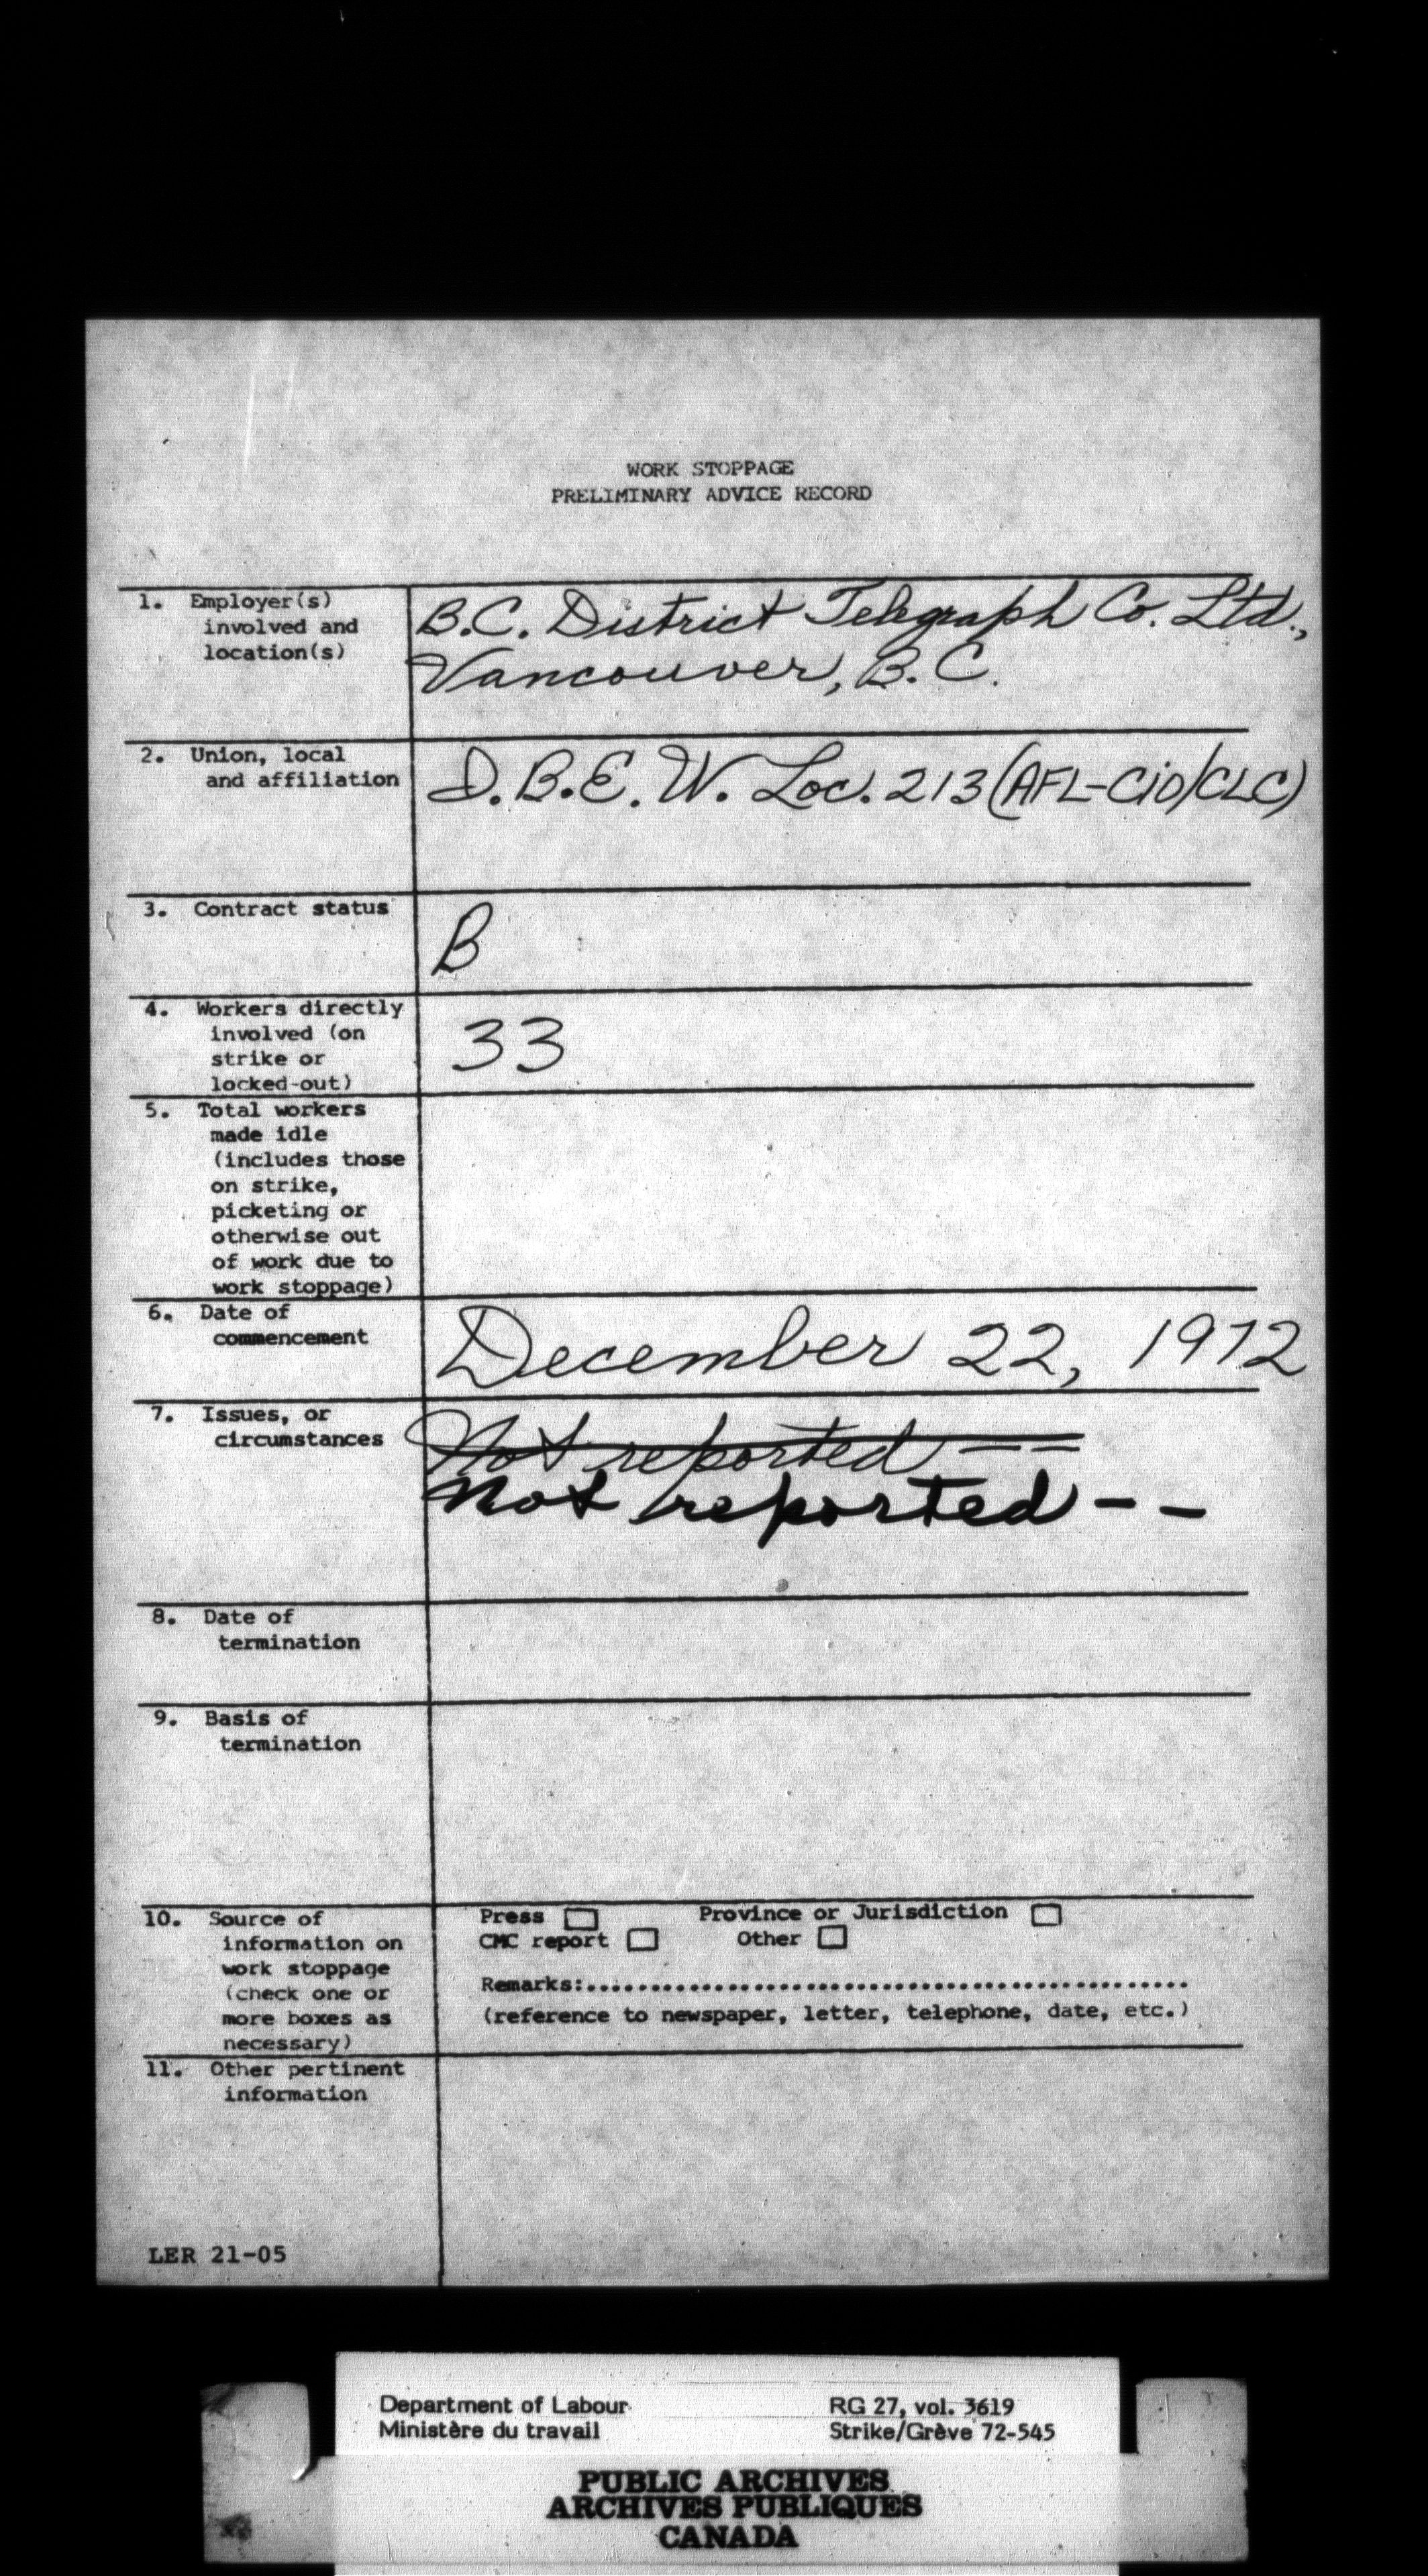 WORK STOPPAGE
PRELIMINARY ADVICE RECORD
1. Employer(s) involved and location(s)
B.C. District Telegraph Co. Ltd.,
Vancouver, B.C.
2. Union, local and affiliation
I.B.E.W. Loc. 213 (AFL-CIO/CLC)
3. Contract status
B
4. Workers directly involved (on strike or locked-out)
33
5. Total workers made idle (includes those on strike, picketing or otherwise out of work due to work stoppage)
6. Date of commencement
December 22, 1972
7. Issues, or circumstances
Not reported --
Not reported --
8. Date of termination
9. Basis of termination
10. Source of information on work stoppage (check one or more boxes as necessary)
Press □ Province or Jurisdiction □
CMC report □ Other □
Remarks:..............................................
(reference to newspaper, letter, telephone, date, etc.)
11. Other pertinent information
LER 21-05
Department of Labour RG 27, vol. 3619
Ministère du travail Strike/Grève 72-545
PUBLIC ARCHIVES
ARCHIVES PUBLIQUES
CANADA